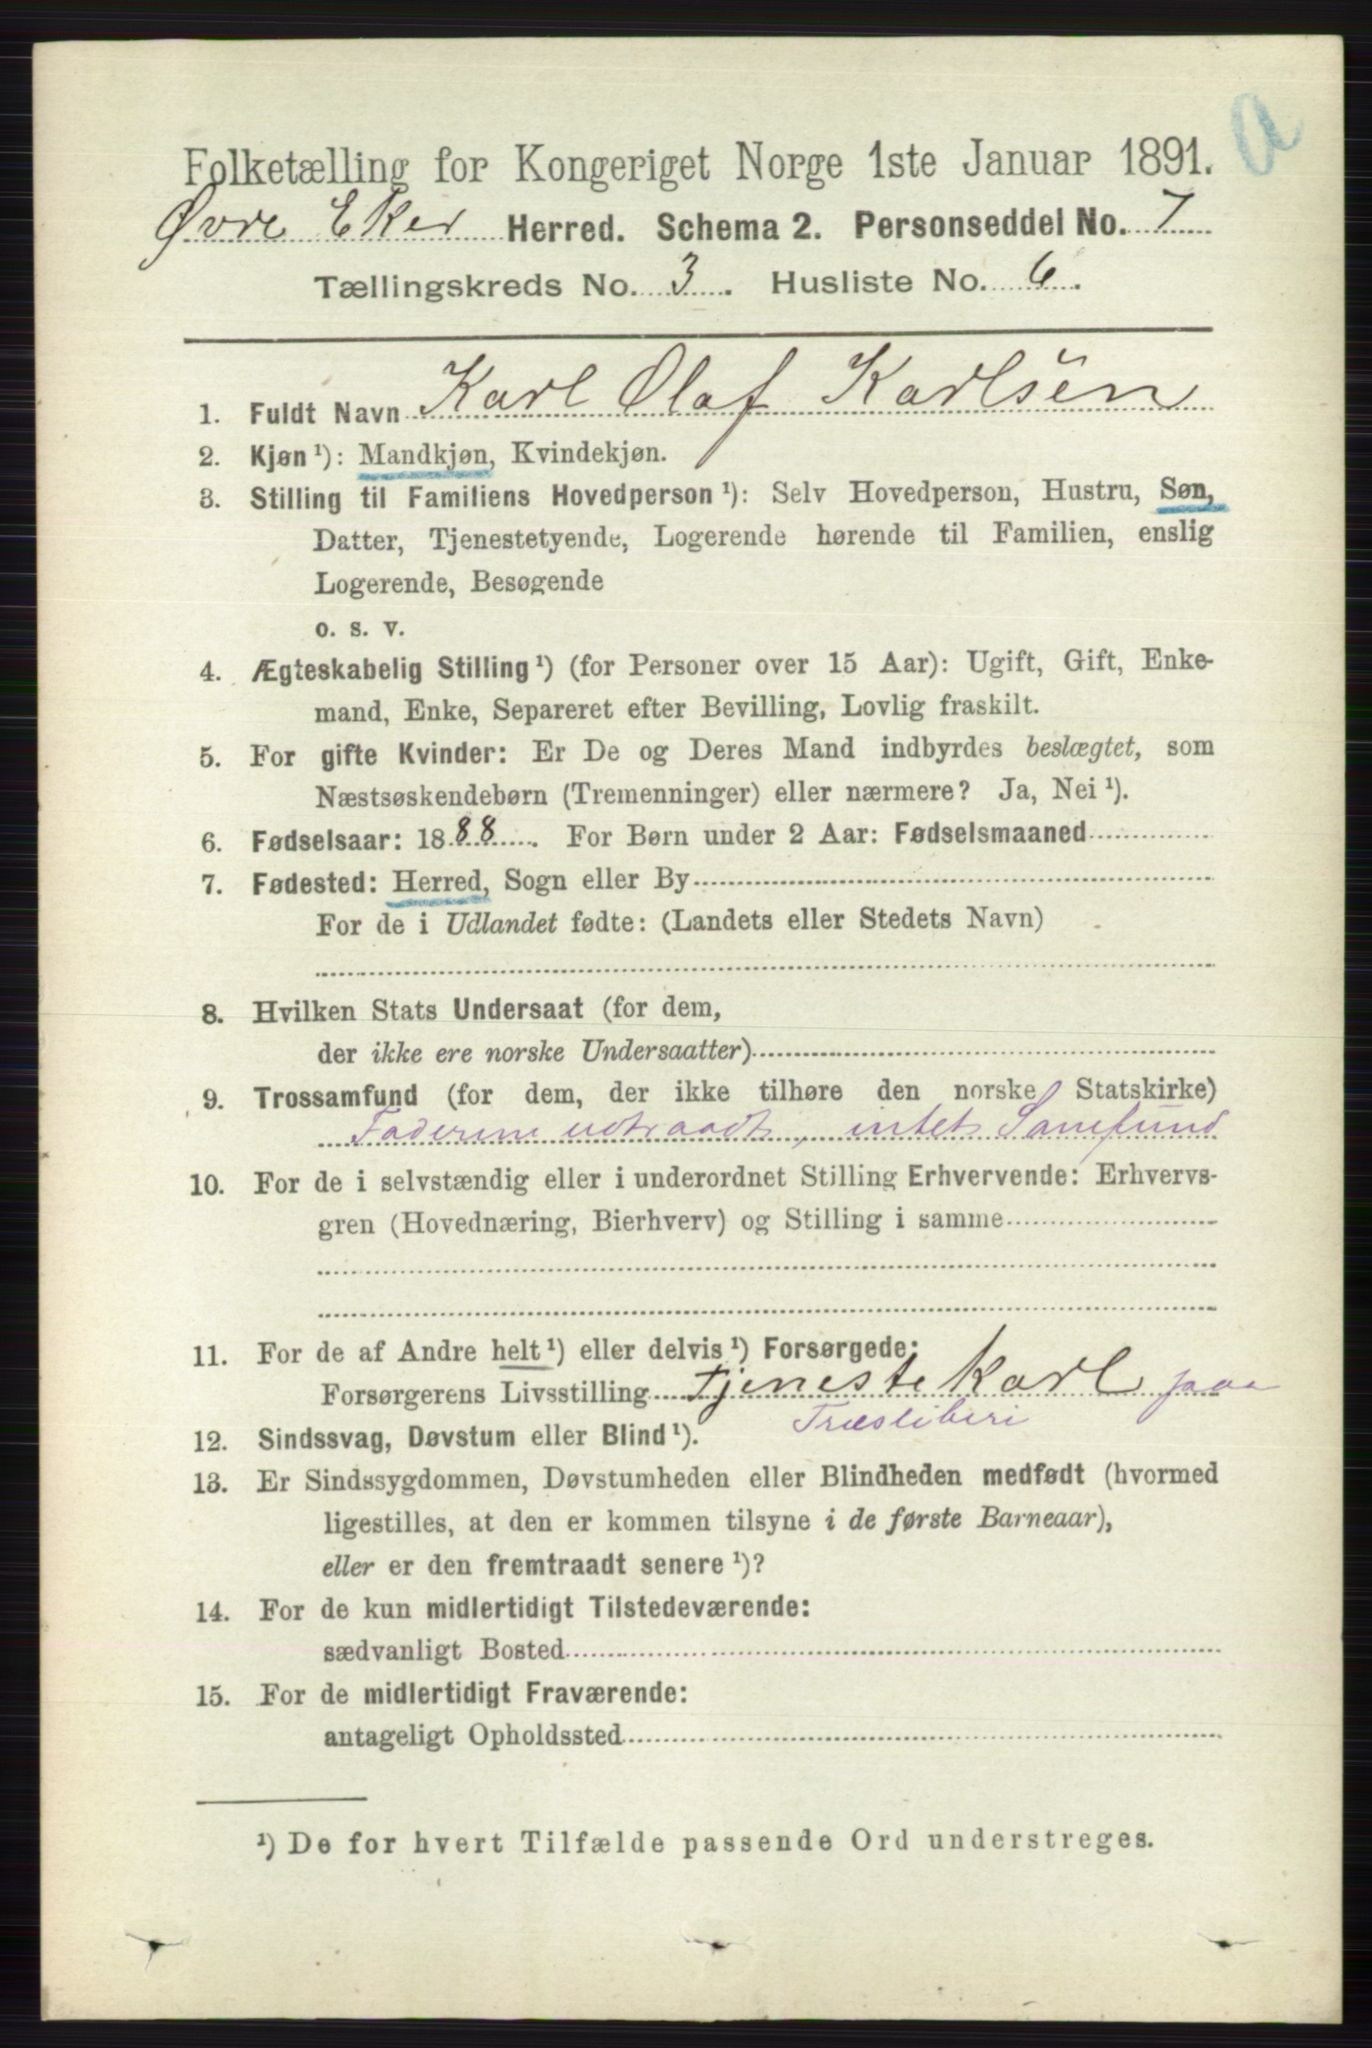 a
Folketælling for Kongeriget Norge 1ste Januar 1891.
Øvre Eker Herred. Schema 2. Personseddel No. 7
Tællingskreds No. 3. Husliste No. 6.
1. Fuldt Navn Karl Olaf Karlsen
2. Kjøn ¹): Mandkjøn, Kvindekjøn.
3. Stilling til Familiens Hovedperson ¹): Selv Hovedperson, Hustru, Søn,
Datter, Tjenestetyende, Logerende hørende til Familien, enslig
Logerende, Besøgende
o. s. v.
4. Ægteskabelig Stilling ¹) (for Personer over 15 Aar): Ugift, Gift, Enke-
mand, Enke, Separeret efter Bevilling, Lovlig fraskilt.
5. For gifte Kvinder: Er De og Deres Mand indbyrdes beslægtet, som
Næstsøskendebørn (Tremenninger) eller nærmere? Ja, Nei ¹).
6. Fødselsaar: 1888. For Børn under 2 Aar: Fødselsmaaned
7. Fødested: Herred, Sogn eller By
For de i Udlandet fødte: (Landets eller Stedets Navn)
8. Hvilken Stats Undersaat (for dem,
der ikke ere norske Undersaatter)
9. Trossamfund (for dem, der ikke tilhøre den norske Statskirke)
Faderen udtraadt, intet Samfund
10. For de i selvstændig eller i underordnet Stilling Erhvervende: Erhvervs-
gren (Hovednæring, Bierhverv) og Stilling i samme
11. For de af Andre helt ¹) eller delvis ¹) Forsørgede:
Forsørgerens Livsstilling Tjenestekarl paa
Træsliberi
12. Sindssvag, Døvstum eller Blind ¹).
13. Er Sindssygdommen, Døvstumheden eller Blindheden medfødt (hvormed
ligestilles, at den er kommen tilsyne i de første Barneaar),
eller er den fremtraadt senere ¹)?
14. For de kun midlertidigt Tilstedeværende:
sædvanligt Bosted
15. For de midlertidigt Fraværende:
antageligt Opholdssted
¹) De for hvert Tilfælde passende Ord understreges.